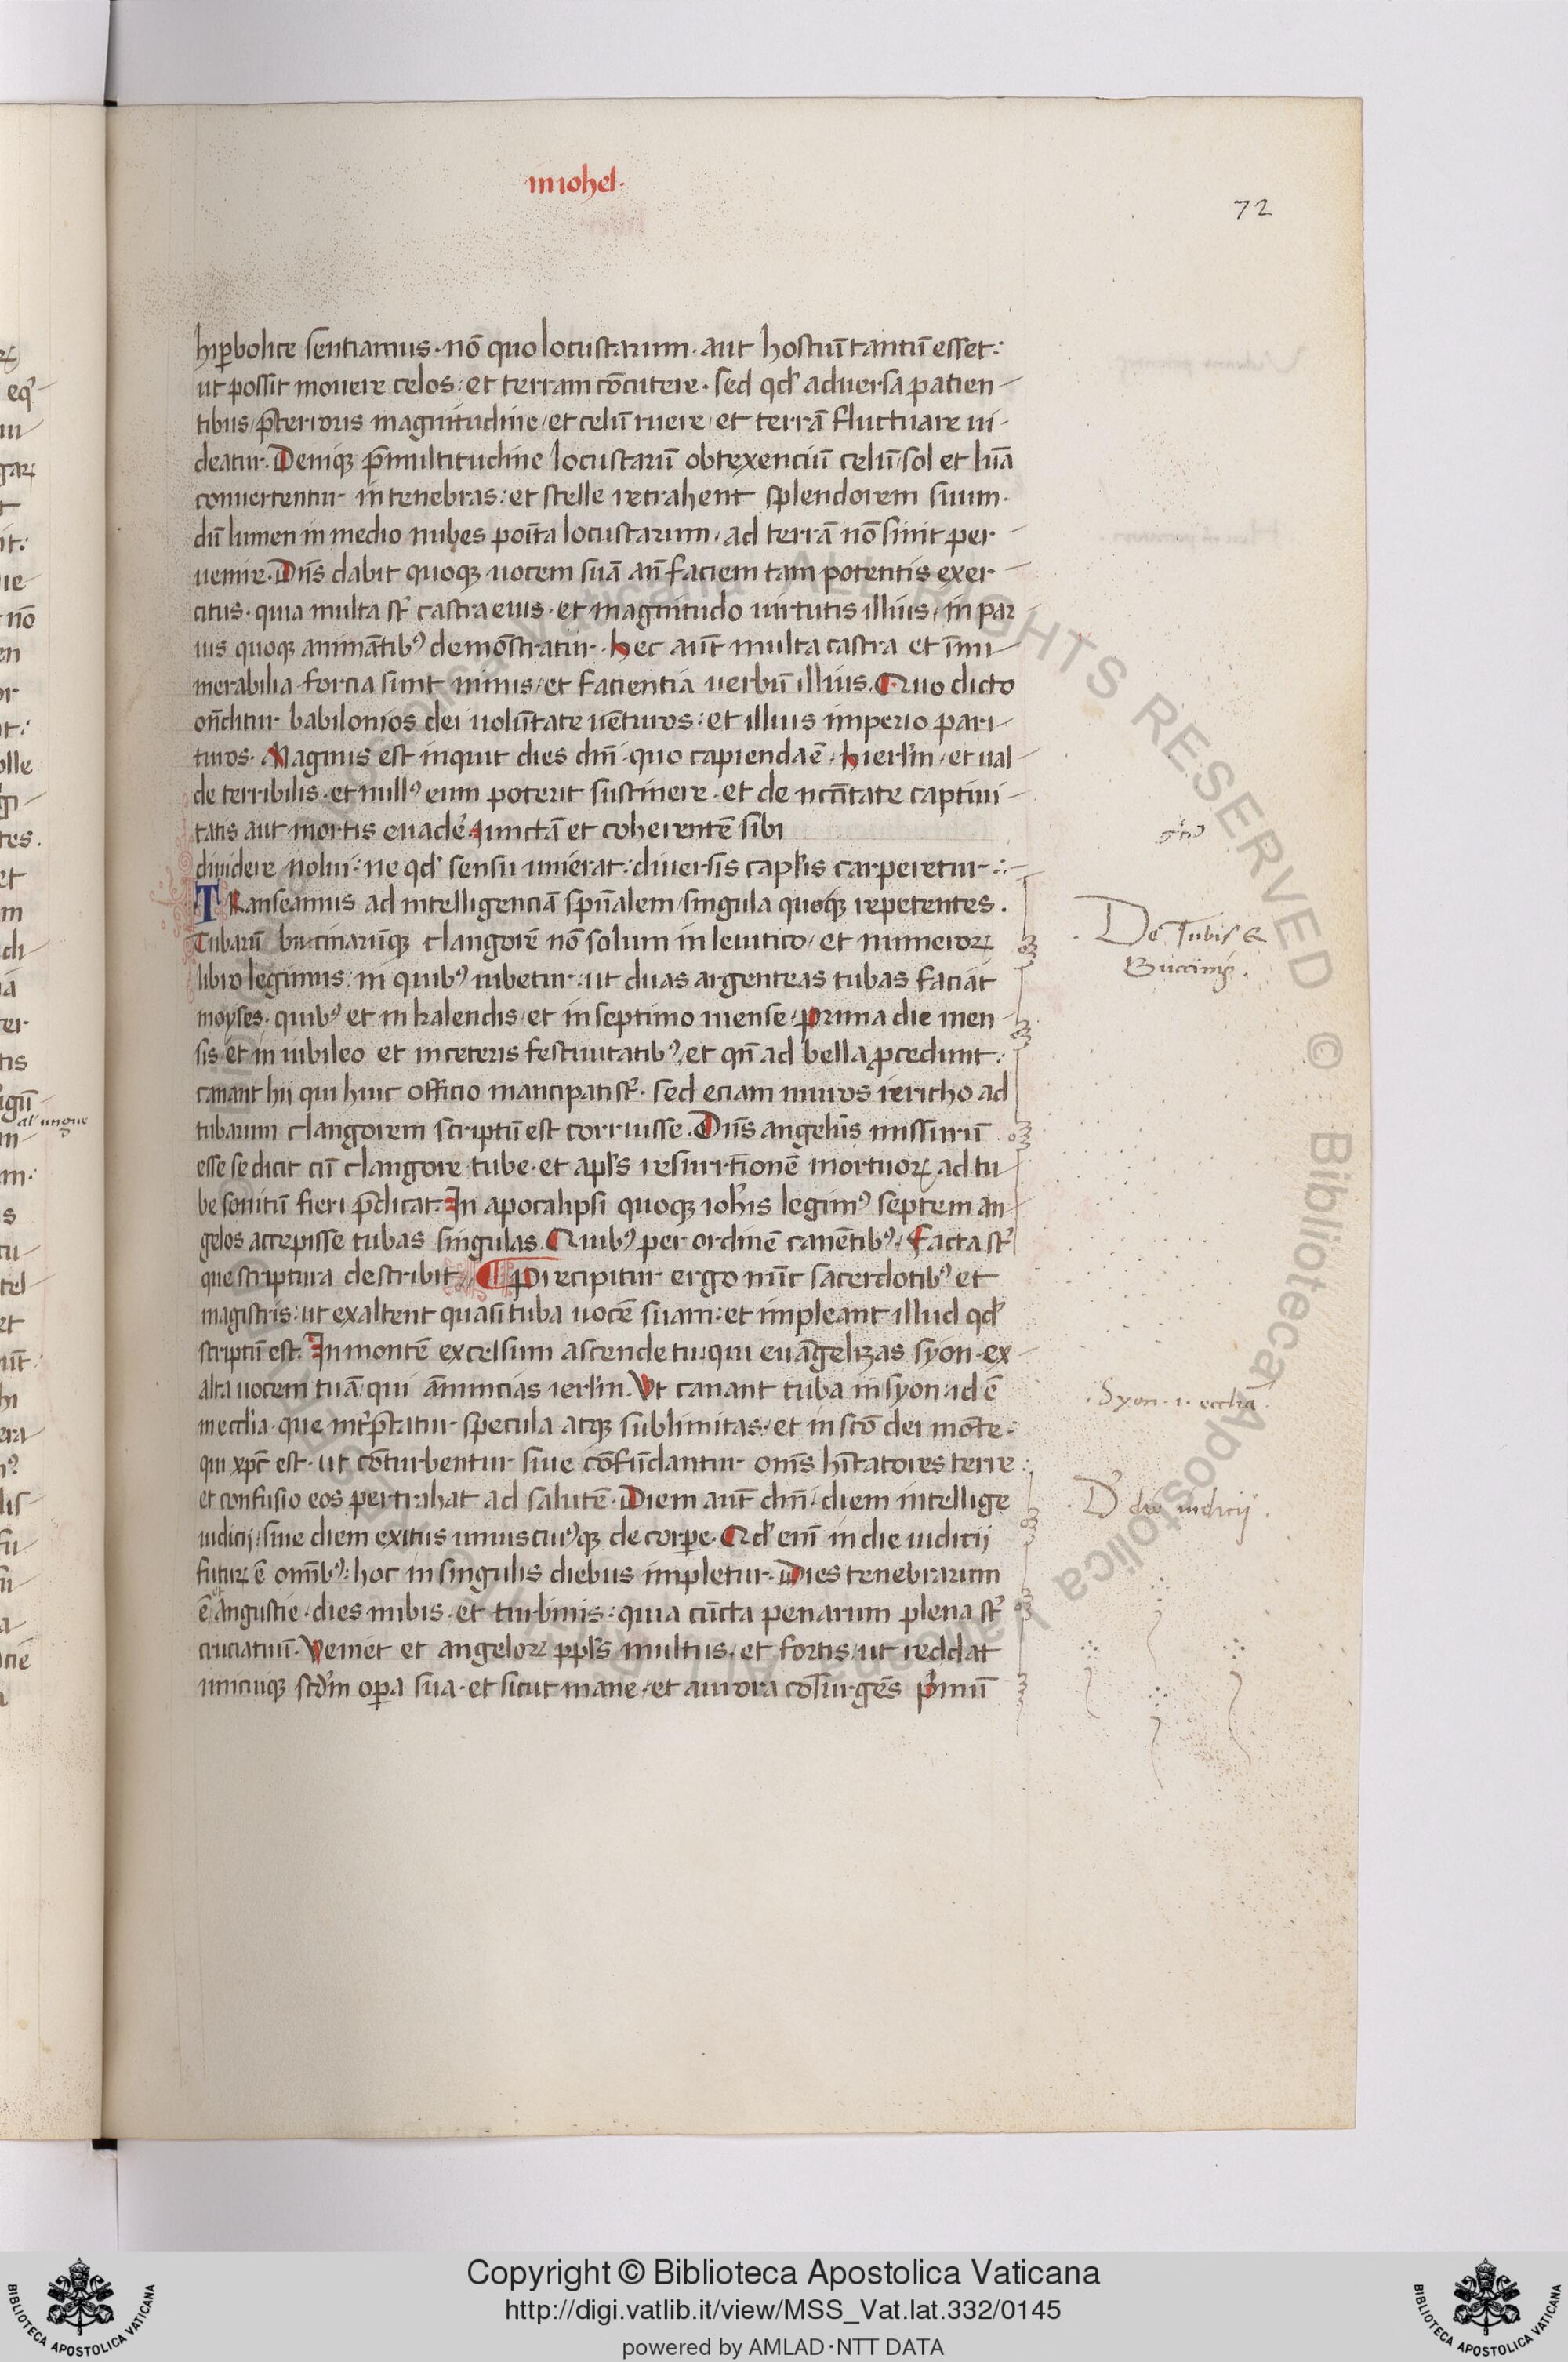 in iohel.
72
hiꝑbolice sentiamus. nō quo locustarum. aut hostiū tantū esset:
ut possit mouere celos: et terram cōcutere. sed qd' aduersa patien
tibus p̄ terroris magnitudine et celū ruere et terrā fluctuare ui
deatur. Deniqꝫ p̄ multitudine locustarū obtexenciū celū sol et lūa
conuertentur in tenebras: et stelle retrahent splendorem suum.
dū lumen in medio nubes poīta locustarum, ad terrā nō sinit per
uenire. Dn̄s dabit quoqꝫ uocem suā an̄ faciem tam potentis exer
citus. quia multa st̄ castra eius. et magnitudo uirtutis illius, in par
uis quoqꝫ animātibꝰ demōstratur. hec aūt multa castra et īnu
merabilia forcia sunt nimis, et facientia uerbū illius. Quo dicto
on̄ditur babilonios dei volūtate uēturos: et illius imperio pari
turos. Magnus est inquit dies dn̄i quo capienda ē hierl'm et ual
de terribilis. et nullꝰ eum poterit sustinere. et de ncc̄itate captiui
tatis aut mortis euadē iunctā et coherentē sibi
diuidere nolui: ne qd' sensu unierat: diuersis capl'is carperetur:
TRanseamus ad intelligenciā spūalem singula quoqꝫ repetentes.
Tubarū bucinarūqꝫ clangorē nō solum in leuitico, et numeroꝝ
libro legimus: in quibꝰ iubetur: ut duas argenteas tubas faciat
moyses. quibꝰ et in kalendis et in septimo mense prima die men
sis et in iubileo et in ceteris festiuitatibꝰ, et qn̄ ad bella ꝓcedunt:
canant hii qui huic officio mancipati st̄. sed eciam muros iericho ad
tubarum clangorem scriptū est corruisse. Dn̄s angelūs missurū
esse se dicit cū clangore tube. et apl's resurrt̄ionē mortuoꝝ ad tu
be sonitū fieri p̄dicat. In apocalipsi quoqꝫ ioh'is legimꝰ septem an
gelos accepisse tubas singulas. Quibꝰ per ordinē canētibꝰ, Facta st̄
que scriptura describit. Precipitur ergo nūc sacerdotibꝰ et
magistris: ut exaltent quasi tuba uocē suam: et impleant illud qd'
scriptū est. In montē excelsum ascende tu qui euāgelizas syon. ex
alta uocem tuā qui ānuncias ierl'm. Vt canant tuba in syon id ē
in eccl'ia. que int̄p̄tatur specula atqꝫ sublimitas, et in scō dei mōte:
qui xp̄c est. ut cōturbentur siue cōfūdantur om̄s hītatores terre:
et confusio eos pertrahat ad salutē. Diem aūt dn̄i diem intellige
iudicij: siue diem exitus unius cuiꝰqꝫ de corꝑe. Qd' enī in die iudicij
futuꝝ ē om̄ibꝰ: hoc in singulis diebus impletur. Dies tenebrarum
ē et angustie. dies nubis. et turbinis: quia cūcta penarum plena st̄
cruciatuū. Veniet et angeloꝝ ppl's multus, et fortis ut reddat
unicuiqꝫ scd'm oꝑa sua. et sicut mane, et aurora cōsurgēs pimū
De Tubis &
Buccinis.
Syon .i. ecclia.
D' die iudicij.
al' ungue
Copyright © Biblioteca Apostolica Vaticana
http://digi.vatlib.it/view/MSS_Vat.lat.332/0145
powered by AMLAD·NTT DATA
BIBLIOTECA APOSTOLICA VATICANA
BIBLIOTECA APOSTOLICA VATICANA